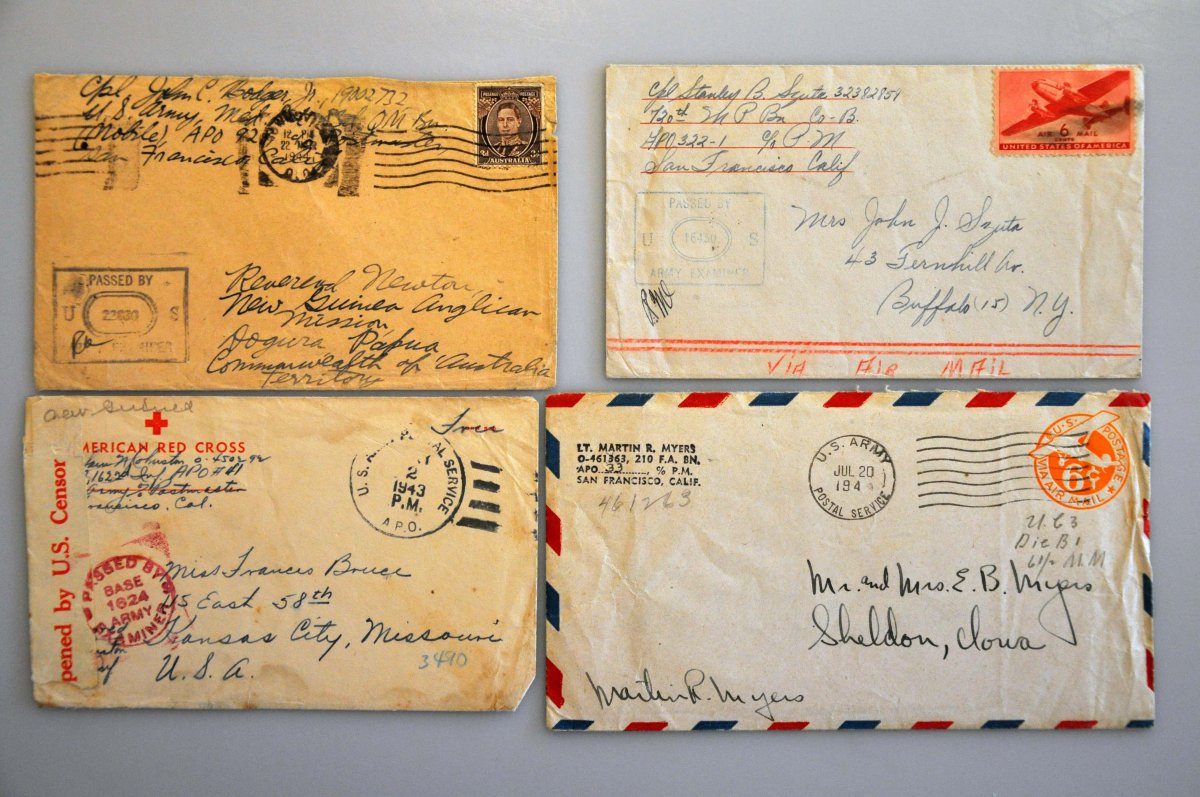 Cpl. John C. Hodger Jr., 19002732
U.S. Army, QM Bn.
(Mobile) APO 92 Postmaster
San Francisco
POSTAGE POSTAGE
3d 3d
AUSTRALIA
PASSED BY
U 22630 S
Reverend Newton,
New Guinea Anglican
Mission,
Dogura Papua
Commonwealth of Australia
Territory
Cpl Stanley B. Szuta 32382851
720th M P Bn Co-B.
APO 322-1 c/o P.M
San Francisco Calif
AIR 6 MAIL
UNITED STATES OF AMERICA
PASSED BY
U 16430 S
ARMY EXAMINER
Mrs John J. Szuta
43 Fernhill Av.
Buffalo (15) N.Y.
VIA AIR MAIL
New Guinea
MERICAN RED CROSS
Free
APO #41
Army Postmaster
Cal.
pened by U.S. Censor
U.S. POSTAL SERVICE
2
1943
P.M.
A.P.O.
PASSED BY
BASE
1624
ARMY
EXAMINER
Miss Frances Bruce
115 East 58th
Kansas City, Missouri
U.S.A.
3490
LT. MARTIN R. MYERS
O-461363, 210 F.A. BN.
APO 33, % P.M.
SAN FRANCISCO, CALIF.
461263
U.S. ARMY
JUL 20
194
POSTAL SERVICE
U.S. POSTAGE
6¢
VIA AIR MAIL
UC3
Die B1
6½ MM
Mr. and Mrs. E. B. Myers
Sheldon, Iowa
Martin R. Myers